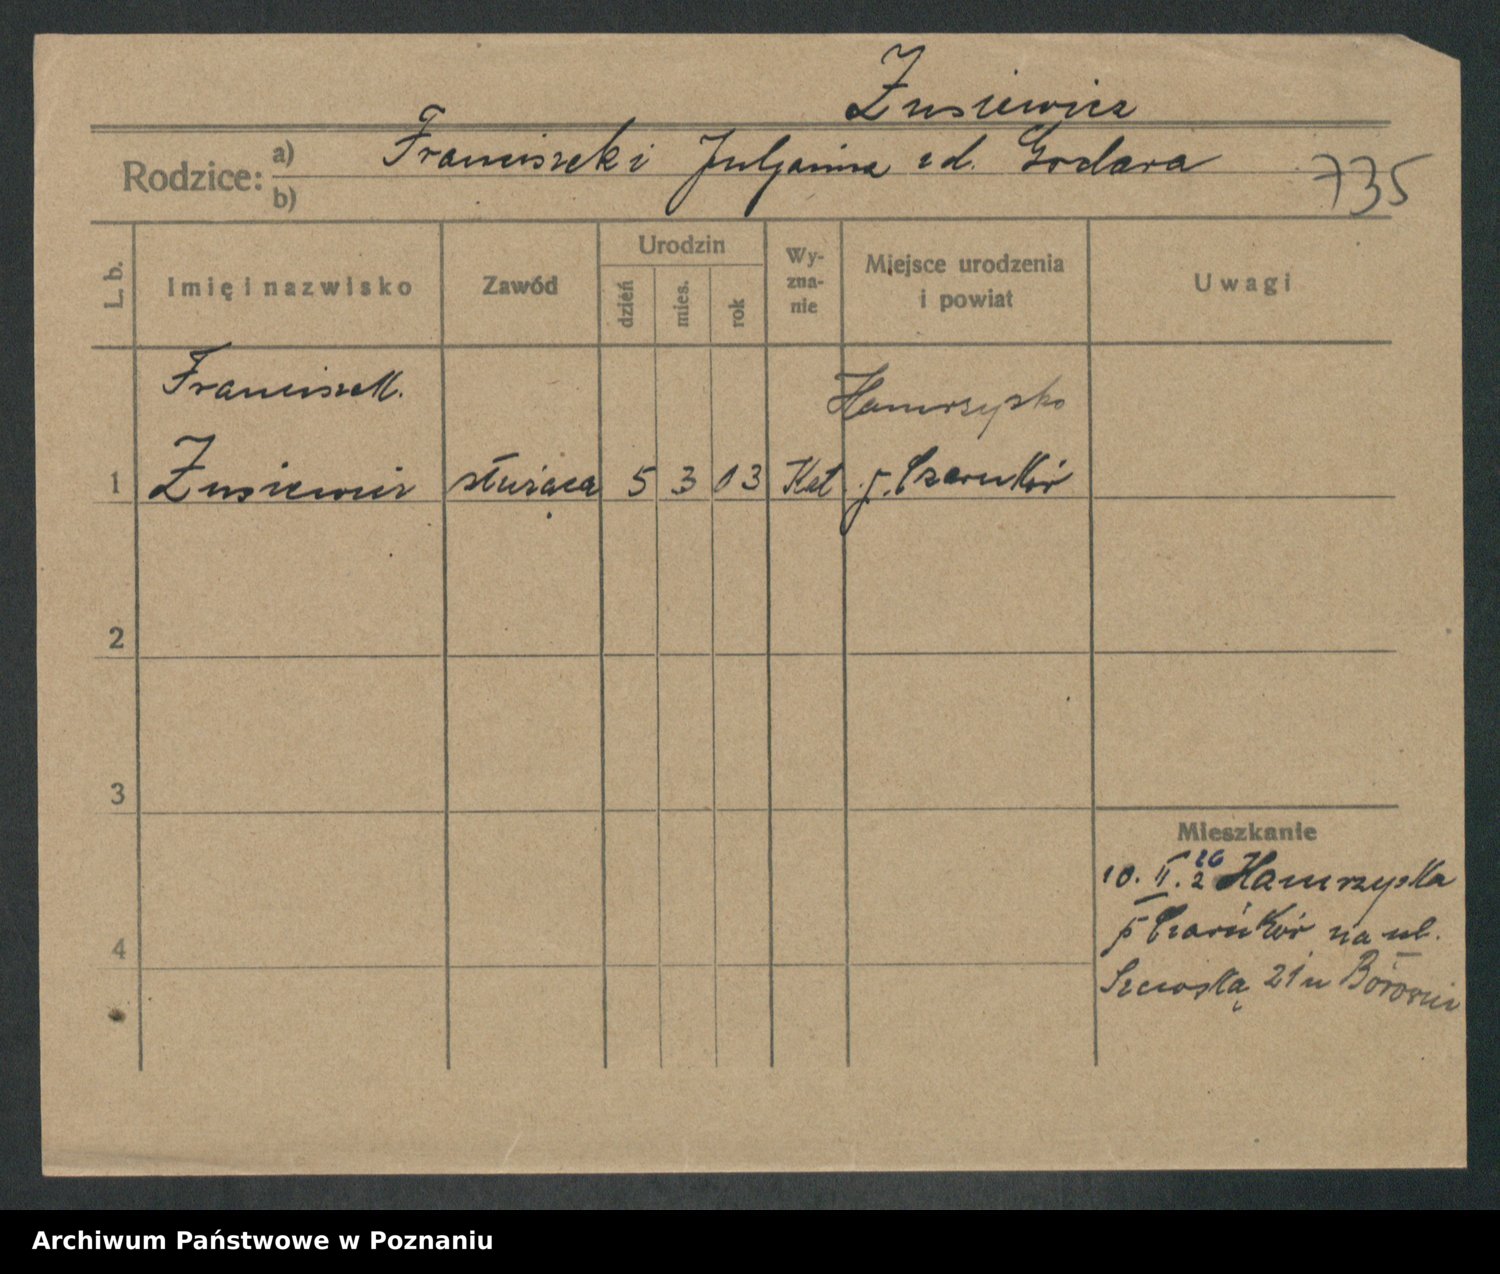 Zusiewicz
Rodzice: a) Franciszek i Juljanna zd. Godara
b)
735
L. b. Imię i nazwisko Zawód Urodzin dzień mies. rok Wyznanie Miejsce urodzenia i powiat Uwagi
Franciszek Hamrzysko
1 Zusiewicz służąca 5 3 03 Kat p. Czarnków
2
3
Mieszkanie
10. II. 26 Hamrzyska
4 p Czarnków na ul.
21 u
Archiwum Państwowe w Poznaniu